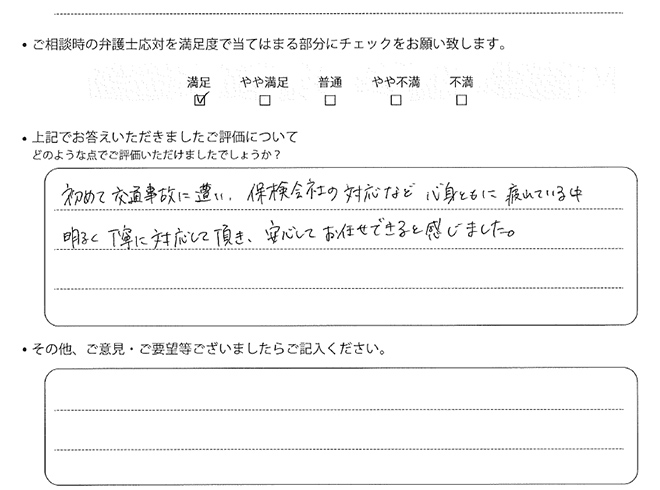 • ご相談時の弁護士応対を満足度で当てはまる部分にチェックをお願い致します。
満足 やや満足 普通 やや不満 不満
☑ ☐ ☐ ☐ ☐
• 上記でお答えいただきましたご評価について
どのような点でご評価いただけましたでしょうか？
初めて交通事故に遭い、保検会社の対応など心身ともに疲れている中
明るく丁寧に対応して頂き、安心してお任せできると感じました。
• その他、ご意見・ご要望等ございましたらご記入ください。